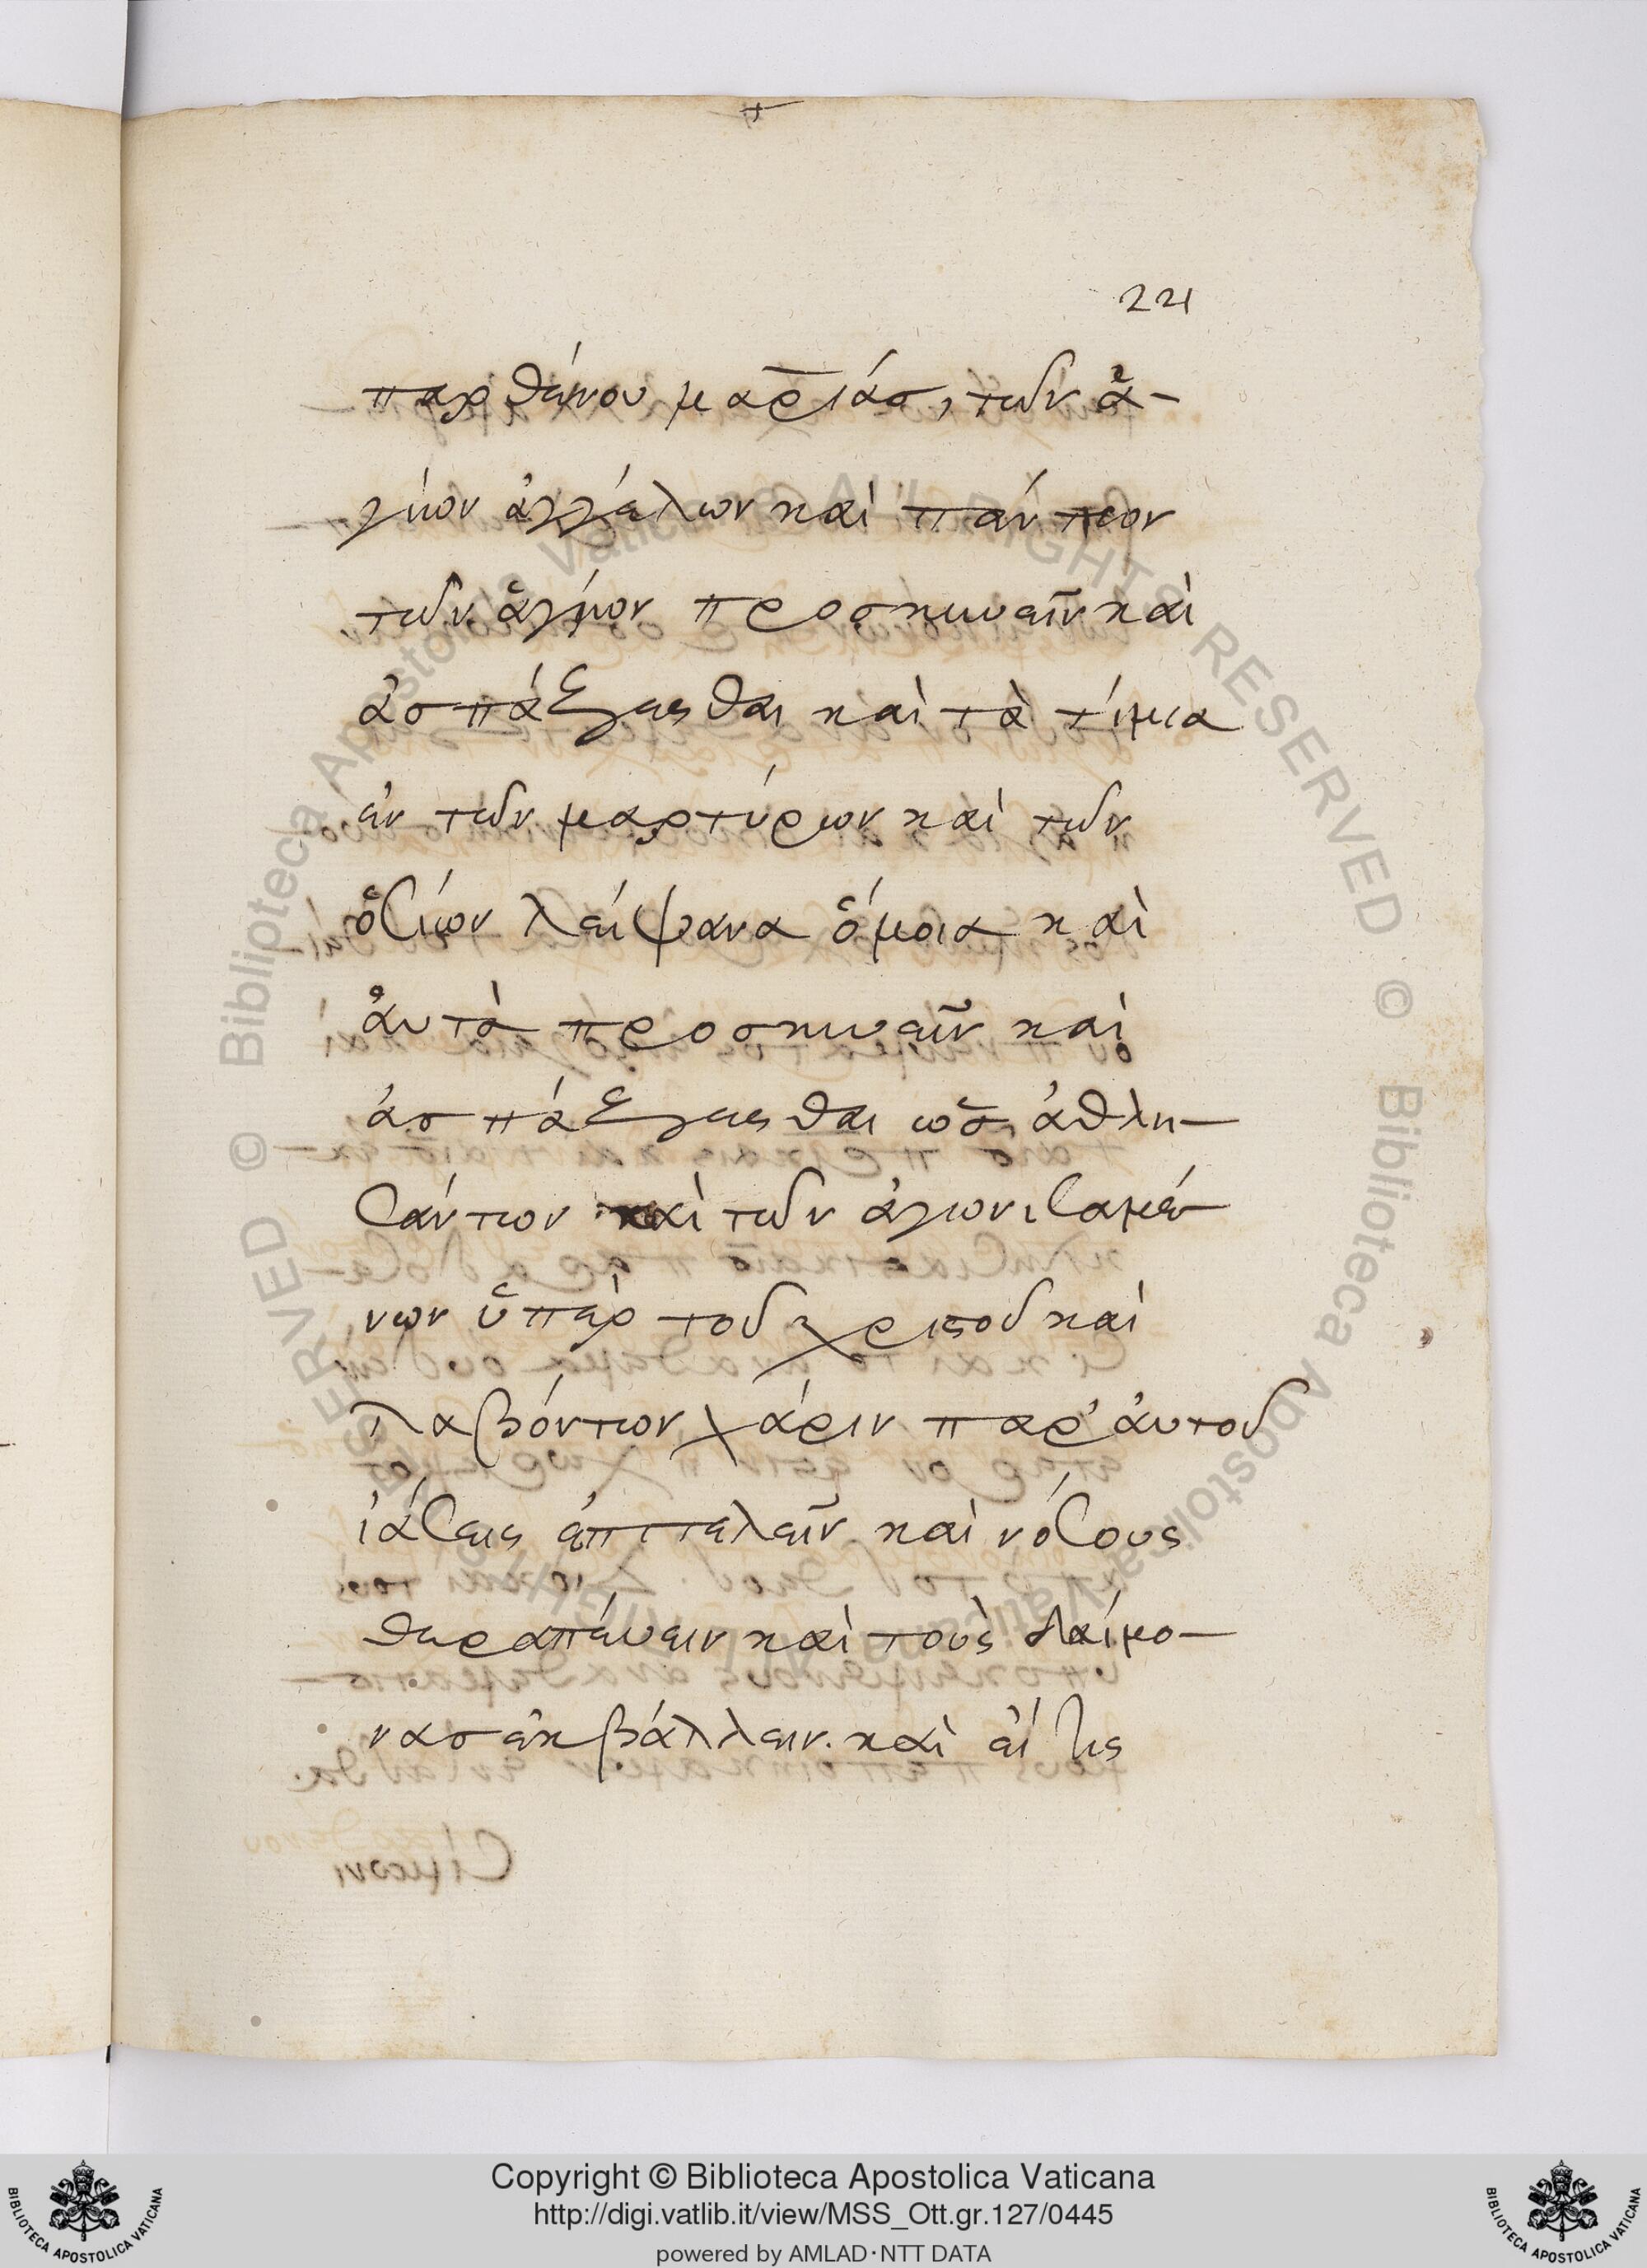 221
παρθένου μαρίασ, τῶν ἁ-
γίων ἀγγέλων καὶ πάντων
τῶν ἁγίων προσκυνεῖν καὶ
ἀσπάξεσθαι καὶ τὰ τίμια
ἐν τῶν μαρτύρων καὶ τῶν
ὁσίων λείψανα ὅμοια καὶ
ἀυτὰ προσκυνεῖν καὶ
ἀσπάξεσθαι ὡσ ἀθλη-
σάντων καὶ τῶν ἀγωνισαμέν
νων ὑπὲρ τοῦ χριστοῦ καὶ
λαβόντων χάριν παρ' ἀυτοῦ
ἰάσεις ἐπιτελεῖν καὶ νόσους
θεραπέυειν καὶ τοὺς δαίμο-
νασ ἐκβάλλειν. καὶ ἐί τις
Copyright © Biblioteca Apostolica Vaticana
http://digi.vatlib.it/view/MSS_Ott.gr.127/0445
powered by AMLAD·NTT DATA
BIBLIOTECA APOSTOLICA VATICANA
BIBLIOTECA APOSTOLICA VATICANA